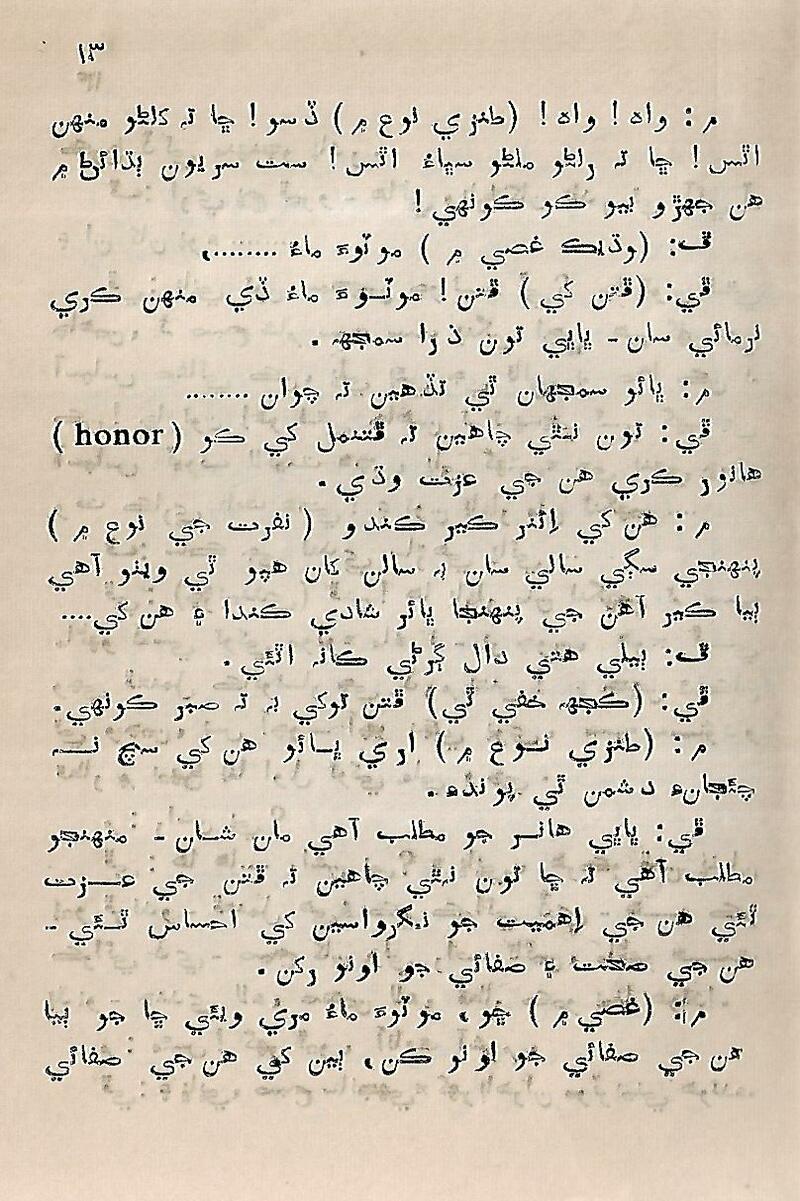 ١٣
م: واه! واه! (طنزي نوع ۾) ڏسو! ڇا ته کلڻو منهن
اٿس! ڇا ته رلڻو ملڻو سڀاءُ اٿس! ست سريون ٻڌائڻ ۾
هن جهڙو ٻيو ڪو ڪونهي!
ف: (وڌيڪ غصي ۾) موٽوءَ ماءُ ........،
ڦي: (ڦتن کي) ڦتن! موٽوءَ ماءُ ڏي منهن ڪري
نرمائي سان ـ ڀاڀي تون ذرا سمجهه.
م: ڀائو سمجهان ٿي تڏهين ته چوان ........
ڦي: تون نٿي چاهين ته ڦتنمل کي ڪو (honor)
هانور ڪري هن جي عزت وڌي.
م: هن کي اِئنر ڪير ڪندو (نفرت جي نوع ۾)
پنهنجي سڳي سالي سان ٻه سالن کان هپو ٿي ويٺو آهي
ٻيا ڪير آهن جي پنهنجا ڀائر شادي ڪندا ۽ هن کي....
ف: ٻيلي هتي دال ڳرڻي ڪانه اٿئي.
ڦي: (ڪجهه خفي ٿي) ڦتن توکي به ته صبر ڪونهي.
م: (طنزي نوع ۾) اري ڀائو هن کي سچ نه
چئجانءِ دشمن ٿي پوندءِ.
ڦي: ڀاڀي هانر جو مطلب آهي مان شان ـ منهنجو
مطلب آهي ته ڇا تون نٿي چاهين ته ڦتن جي عزت
ٿئي هن جي اِهميت جو نگرواسين کي احساس ٿئي ـ
هن جي صحت ۽ صفائي جو اونو رکن.
م: (غصي ۾) ڇو، موٽوءَ ماءُ مري ويئي ڇا جو ٻيا
هن جي صفائي جو اونو ڪن، ٻين کي هن جي صفائي